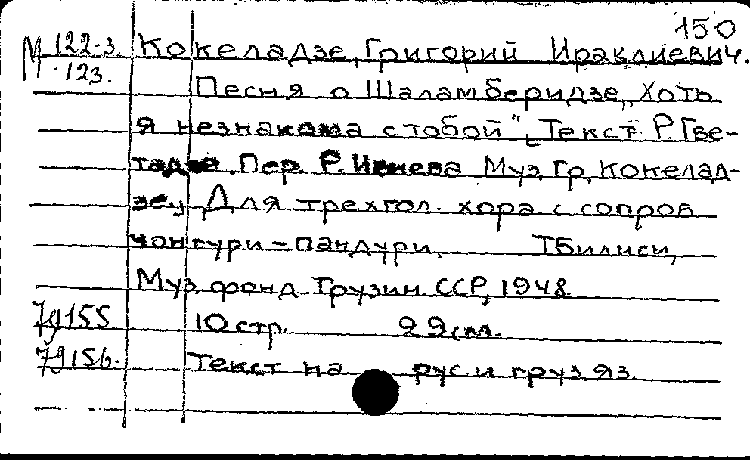 150
М 122-3. Кокеладзе, Григорий Ираклиевич.
123.
Песня о Шаламберидзе „Хоть
я незнакама с тобой". [Текст Р. Гве-
тадзе. Пер. Р. Ивнева Муз. Гр. Кокелад-
зе]. Для трехгол. хора с сопров
чонгури-пандури. Тбилиси,
Муз. фонд Грузин ССР, 1948
79155 10 стр. 29 см.
79156. Текст на рус и груз яз.